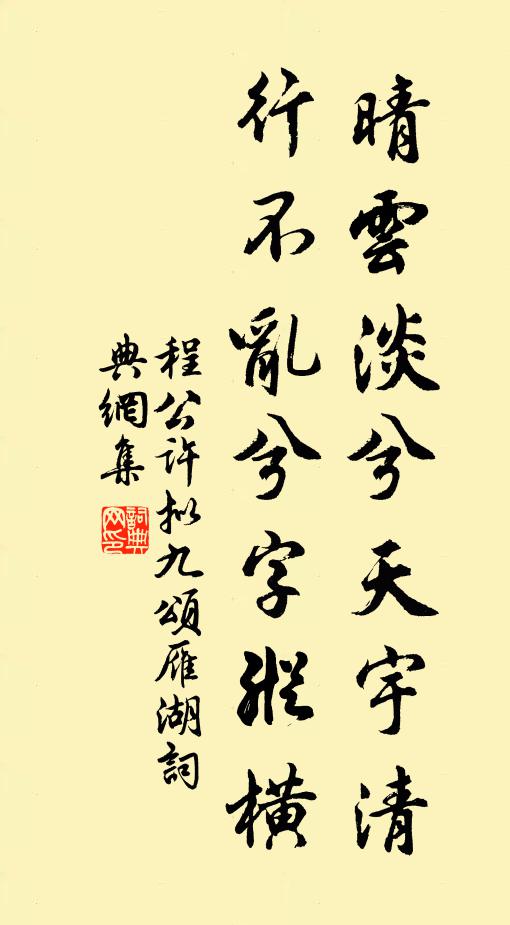 晴雲淡兮天宇清
行不亂兮字縱橫
程公許拟九頌雁湖詞
典網集
詞典
网印